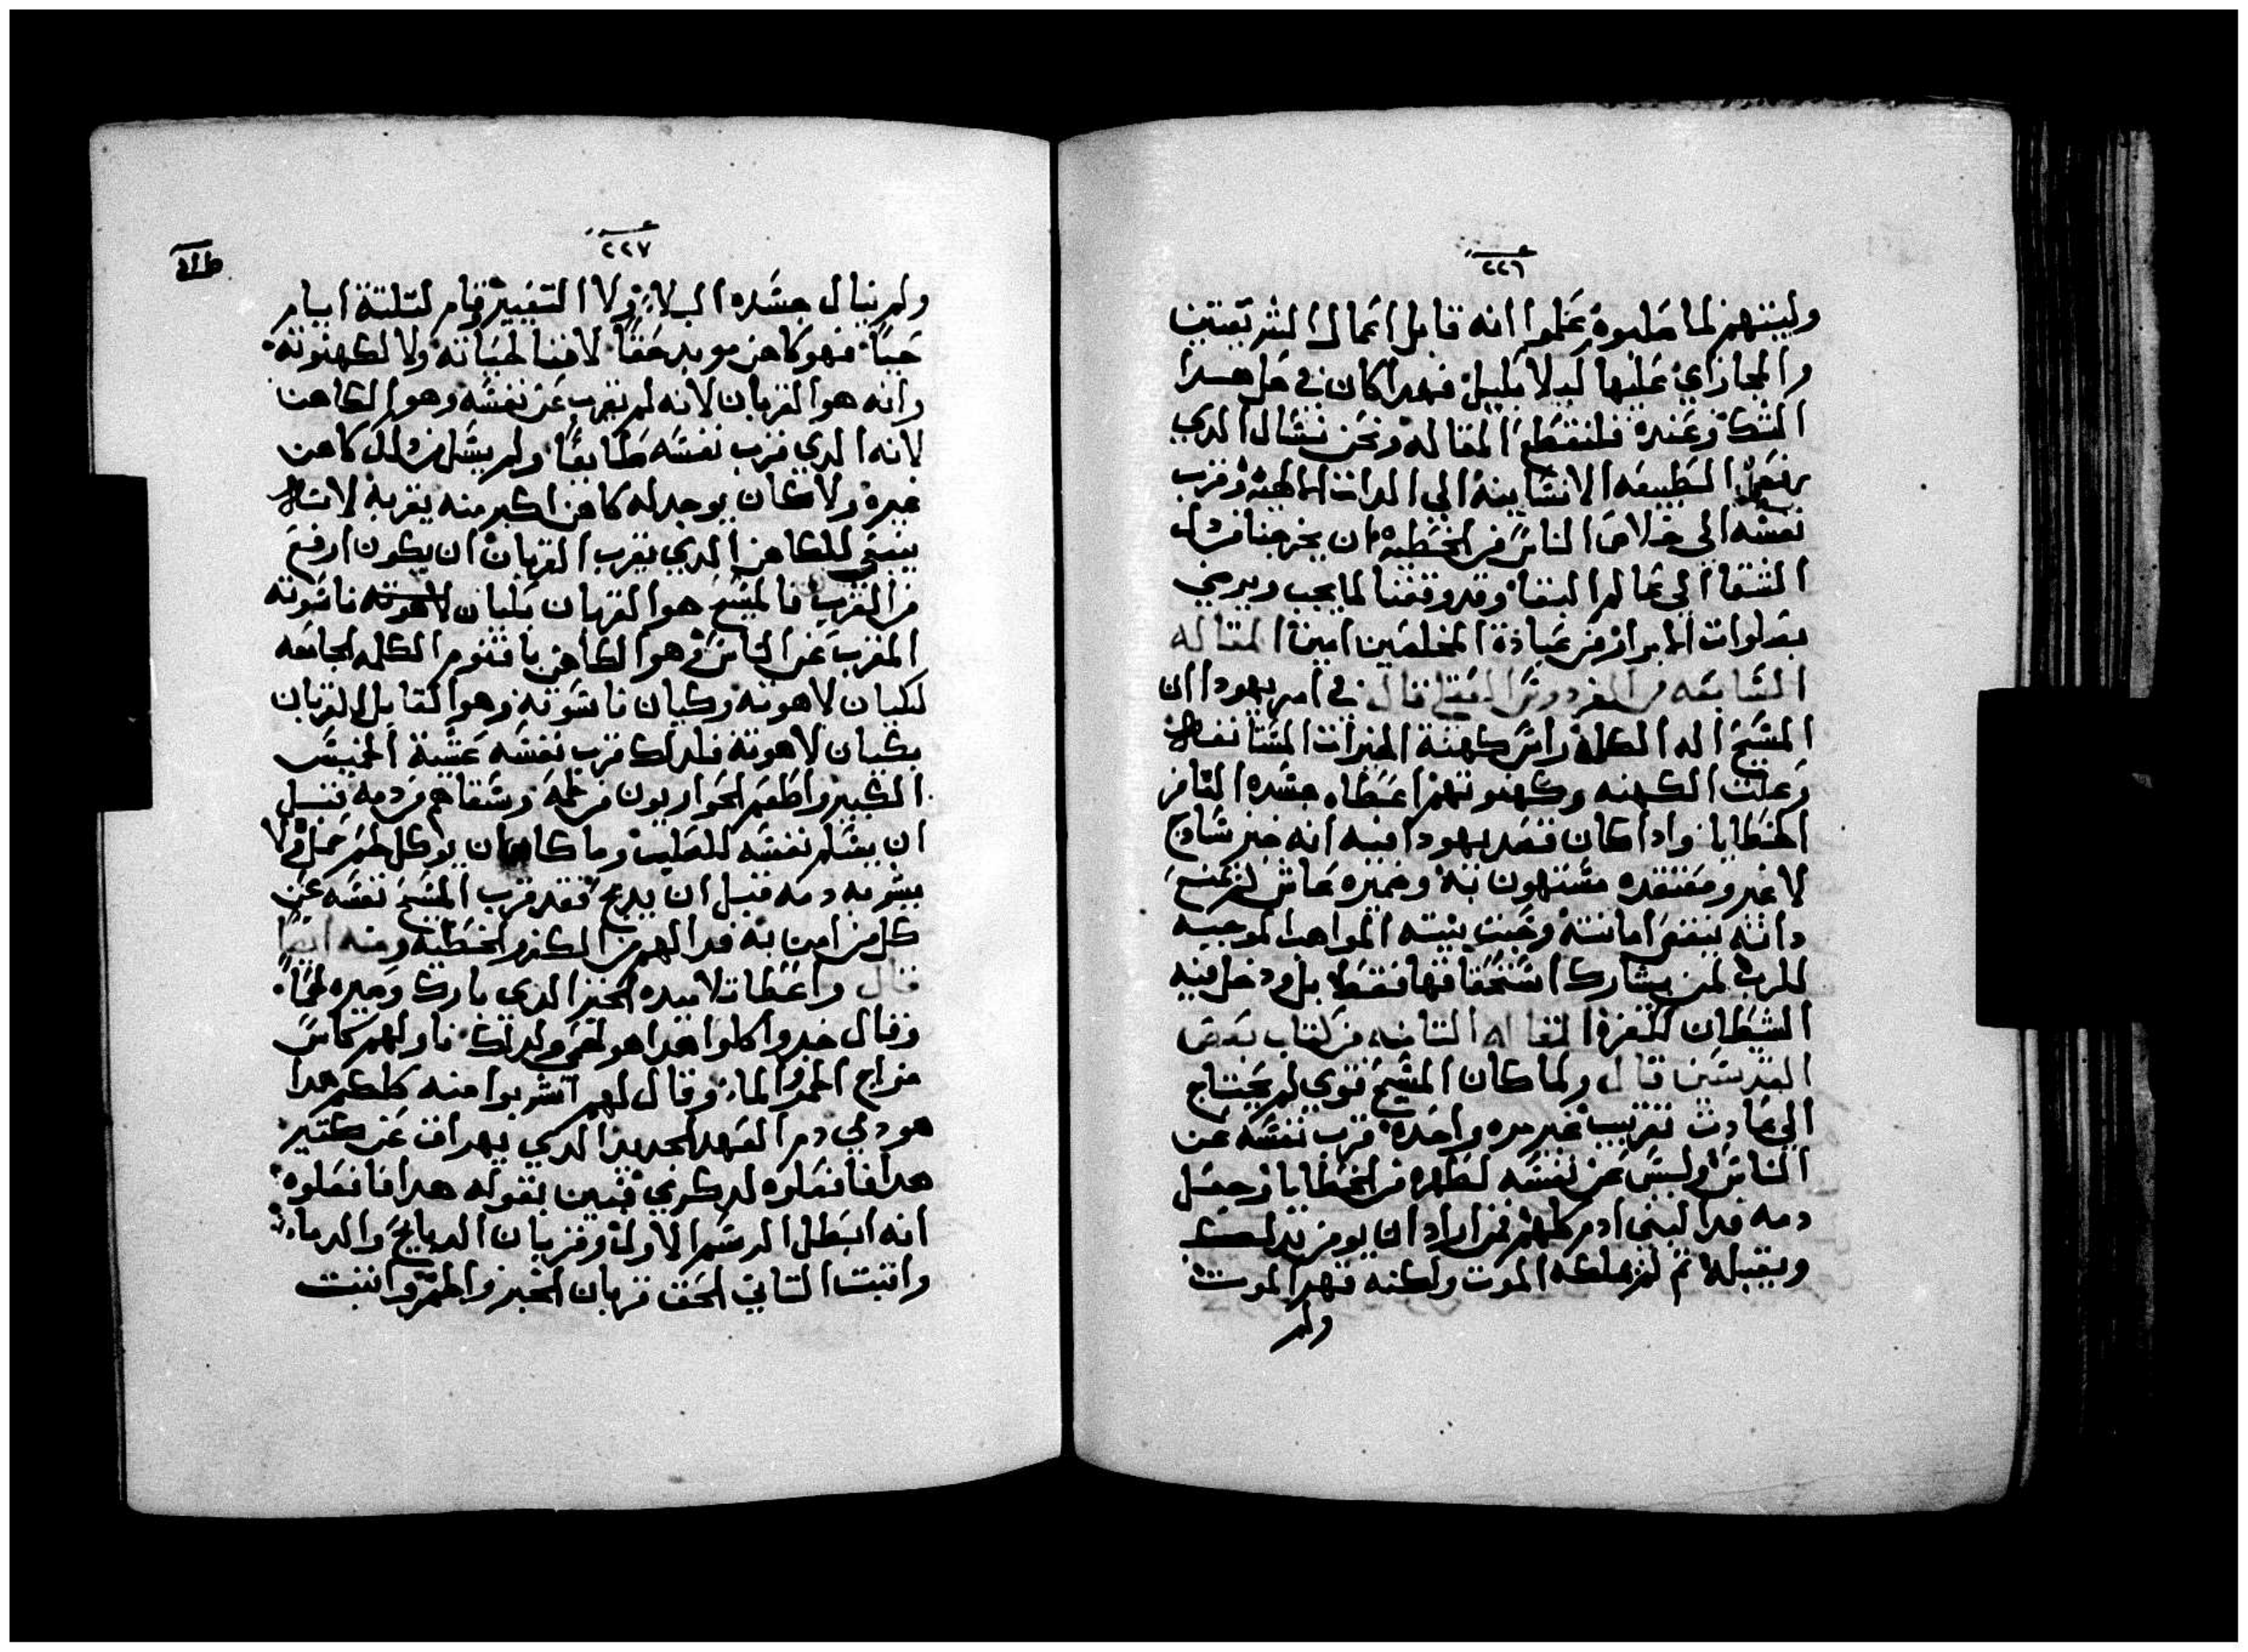 ٢٢٦
وليتهم لما صلبوه علموا انه قابل اعمال الشريعتين
والمجازاي عليها كيلا بكيل فهدا كان في حل هدا
الشك وعنده فلنقطع المقاله ونحن نسال الدي
رفع الطبيعه الانسانيه الي الدات الالهيه وقرب
نفسه الي خلاص الناس من الخطيه ان يخرجنا من دار
الشقا الي عالم البقا وقد وقفنا لما يجب ويرضي
بصلوات الابرار من عباده المخلصين امين المقاله
السابعه من الفردوس العقلي قال في امر يهودا ان
المسيح اله الكل راس كهنة الخيرات المستانفه
وعلت الكهنه وكهنوتهم اعطاه جسده الغافر
الخطايا وادا كان قصد يهودا فيه انه خبز سادج
لا غير ومعتقده مستهون به وضميره غاش لم تمنع
دانته بنقص امانته وخبث نيته المواهب الموجبه
للرب لمن يشارك استحقاقها فقط بل ودخل فيه
الشيطان لكفره المقاله التامنه من كتاب بعض
القديسين قال ولما كان المسيح قوي لم يحتاج
الي عادت تقريب غير مره واحده قرب نفسه عن
الناس وليس عن نفسه لطهره من الخطايا وجعل
دمه فدا لبني ادم كلهم لمن اراد ان يومن بدلك
ويقبله تم لم يملكه الموت ولكنه قهر الموت
ولم
٢٢٧
ولم ينال جسده البلاء ولا التغيير وقام لتلتة ايام
حياً فهو كاهن موبد حقاً لا فنا لحياته ولا لكهنوته
وانه هو القربان لانه لم يقرب عن نفسه وهو الكاهن
لانه الدي قرب نفسه طايعاً ولم يسل في دلك كاهن
غيره ولا كان يوجد له كاهن اكبر منه يقربه لانه
ينبغي للكاهن الدي يقرب القربان ان يكون ارفع
من القربان فالمسيح هو القربان بكيان ناسوته
المقرب عن الناس وهو الكاهن باقنوم الكلمه الجامعه
لكيان لاهوته وكيان ناسوته وهو القابل القربان
بكيان لاهوته فلدلك قرب نفسه عشية الخميس
الكبير واطعم الحواريون من لحمه وسقاهم من دمه قبل
ان يسلم نفسه للصليب وما كان يوكل لحم حمل ولا
يشربه دمه قبل ان يدبح فقد قرب المسيح نفسه عن
كل من امن به فدا لهم من الكفر والخطيه ومنه ايضاً
قال واعطا تلاميده الخبز الدي بارك وصيره لحماً
وقال خدوا كلوا هدا هو لحمي ولدلك ناولهم كاس
مزاج الخمر والماء وقال لهم اشربوا منه كلكم هدا
هو دمي دم العهد الجديد الدي يهراق عن كتير
هدا فافعلوه لدكري فتبين بقوله هدا فافعلوه
انه ابطل الرسم الاول وقربان الدبايح والدماء
واتبت التاني الحق قربان الخبز والخمر واتبت